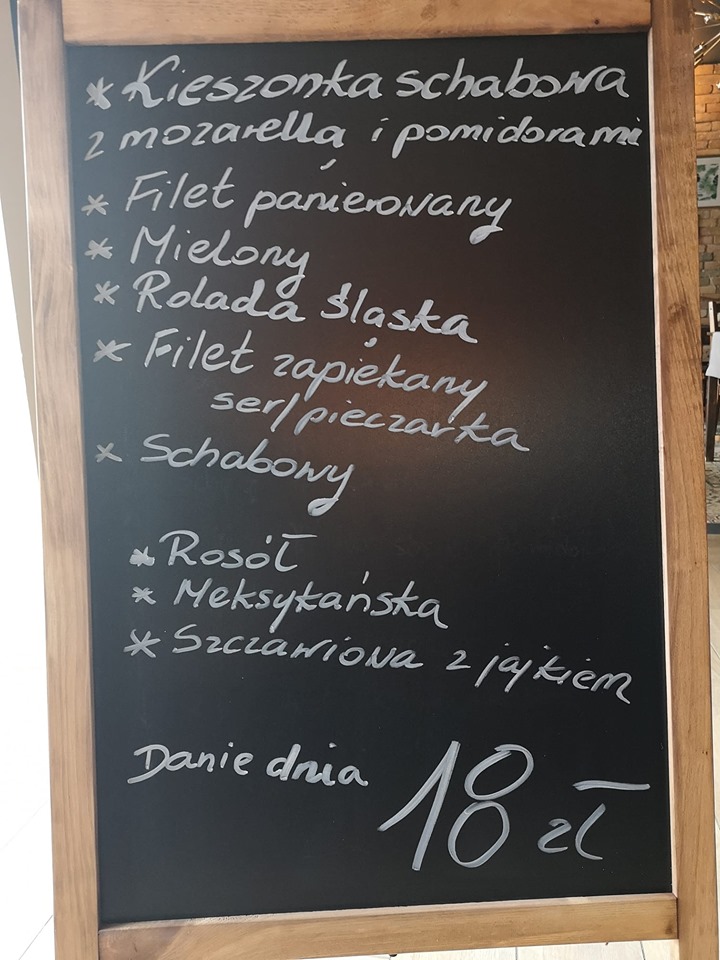 * Kieszonka schabowa
z mozarellą i pomidorami
* Filet panierowany
* Mielony
* Rolada śląska
* Filet zapiekany
ser/pieczarka
* Schabowy
* Rosół
* Meksykańska
* Szczawiowa z jajkiem
Danie dnia 18 zł